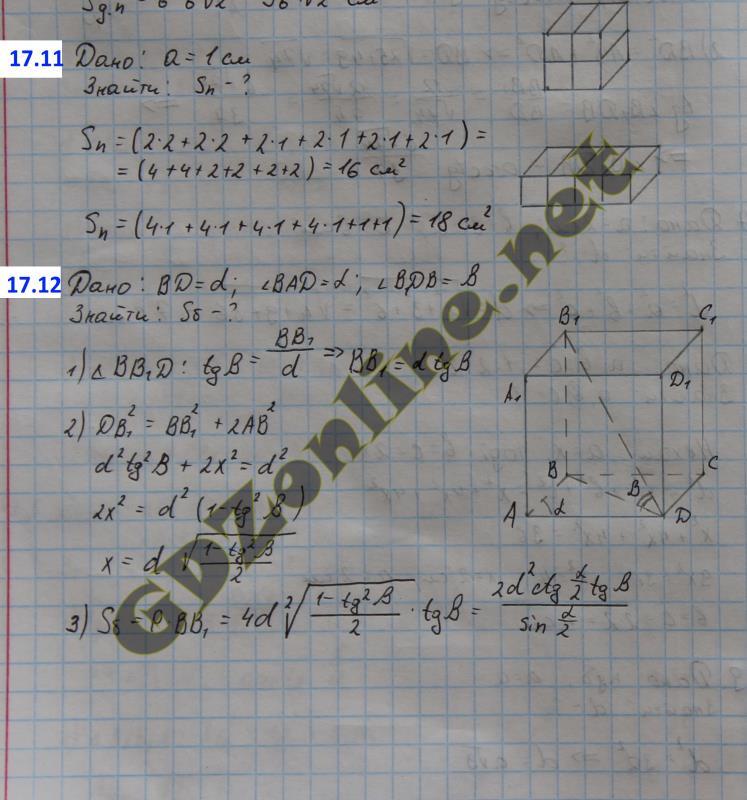 17.11 Дано: a = 1 см
Знайти: Sп - ?
Sп = (2·2 + 2·2 + 2·1 + 2·1 + 2·1 + 2·1) =
= (4 + 4 + 2 + 2 + 2 + 2) = 16 см²
Sп = (4·1 + 4·1 + 4·1 + 4·1 + 1 + 1) = 18 см²
17.12 Дано: BD = d; ∠BAD = α; ∠B₁DB = β
Знайти: Sб - ?
1) △BB₁D: tgβ = BB₁/d ⇒ BB₁ = d tgβ
2) DB₁² = BB₁² + 2AB²
d² tg²β + 2x² = d²
2x² = d² (1 - tg²β)
x = d √((1 - tg²β)/2)
3) Sб = P·BB₁ = 4d ²√((1 - tg²β)/2) · tgβ = (2d² ctg α/2 tgβ)/(sin α/2)
B₁
C₁
A₁
D₁
B
C
β
A
α
D
GDZonline.net